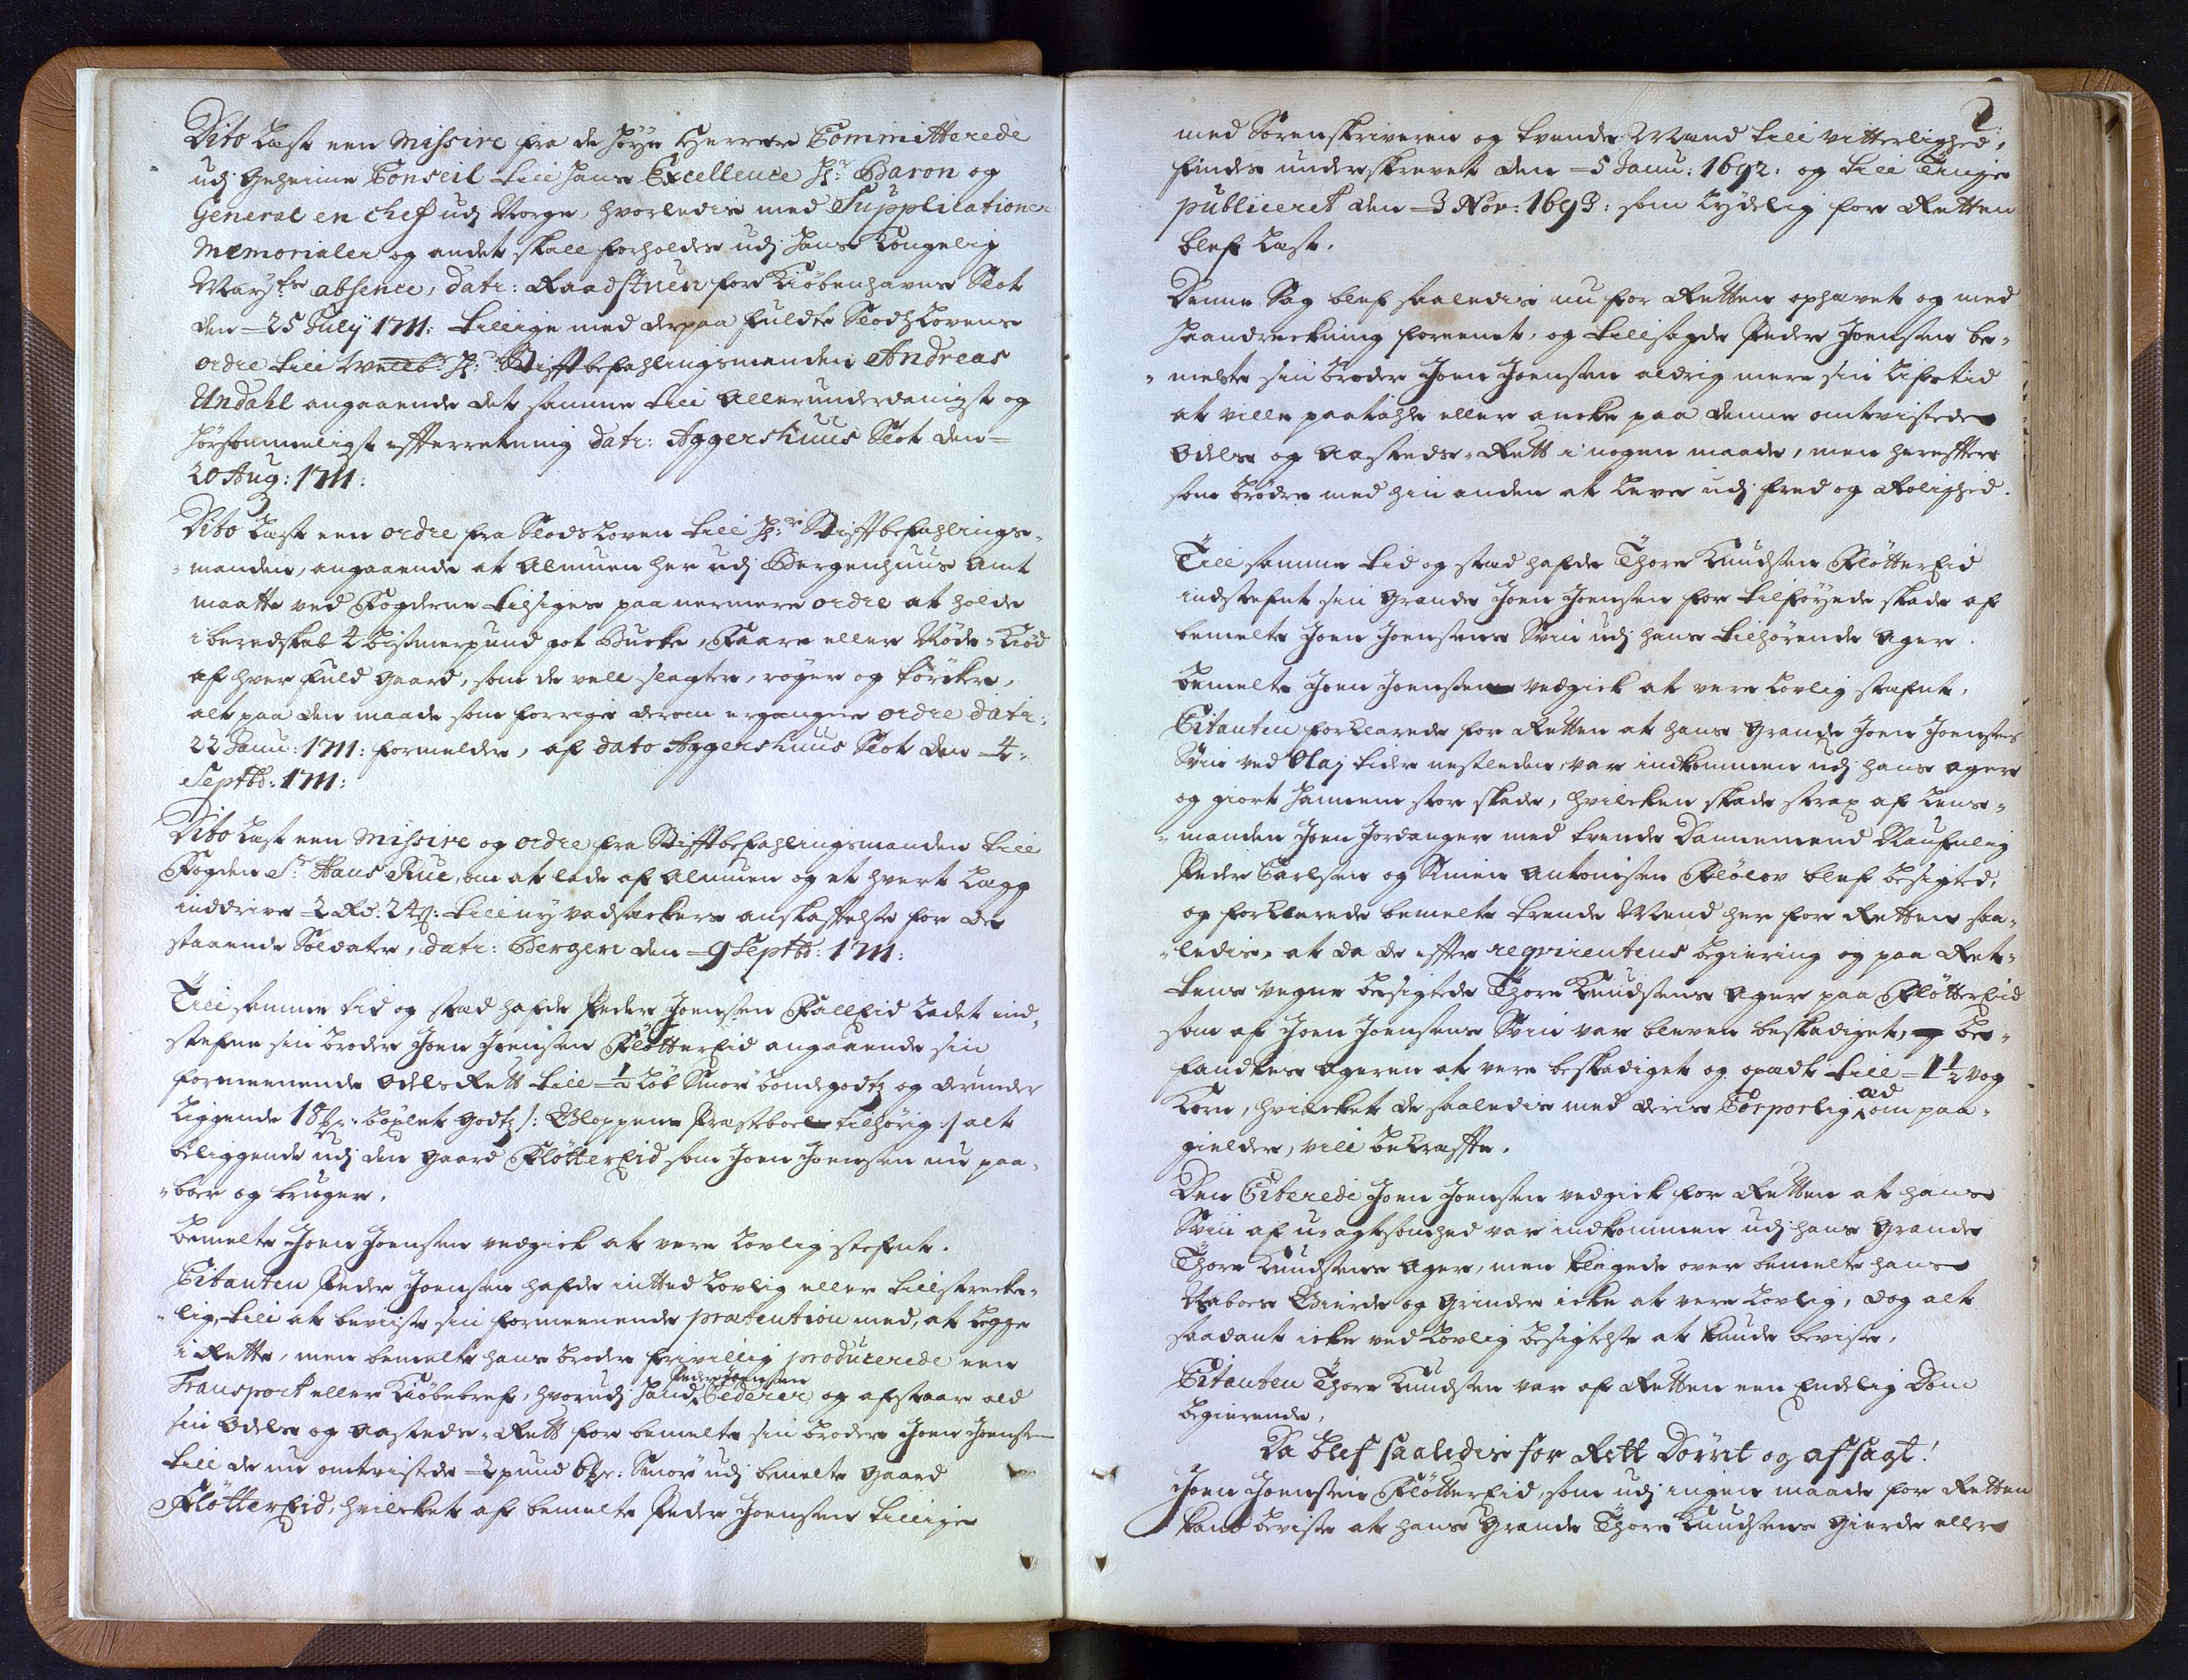 Dito Læst een Missive fra de höye Herrer Committerede
udj Geheime Conseil till hans Excellence Hr. Baron og
General en chef udj Norge, hvorledis med Supplicationer
Memorialer og andet skall forholdes udj hans Kongelig
Maÿts. absence, datr: Raadstuen for Kiöbenhavns Slot
den 25 Julÿ 1711: tillige med derpaa fuldte Slodzlovens
ordre till Welb. Hr: Stifftbefahlingsmanden Andreas
Undahl angaaende det samme till Allerunderdanigst og
hörsommeligst efterretning datr: Aggershuus Slot den=
20 Aug: 1711:
Dito Læst een ordre fra Slodsloven till Hr: Stifftbefahlings=
=manden, angaaende at Almuen her udj Bergenhuus Amt
maatte ved Fogderne tilsiges paa nermere ordre at holde
i beredskab 4 bismerpund got Bucke, Faare eller Nöde=Kiöd
af hver fuld Gaard, som de vell slagter, röger og törcker,
alt paa den maade som forrige derom ergangne ordre datr:
22 Janu: 1711: formelder, af dato Aggershuus Slot den 4:
Septbr: 1711:
Dito Læst een Missive og ordre fra Stifftbefahlingsmanden till
Fogden Sr. Hans Rue, om at lade af Almuen og et hvert Lægg
inddrive 2 Rd. 24 s: till ny vadseckers anskaffelse for de
staaende Soldater, datr: Bergen den 9 Septbr: 1711:
Till samme tid og stæd hafde Peder Joensen Fallejd ladet ind=
stefne sin broder Joen Joensen Flötterejd angaaende sin
formeenende Odels Rett till ½ Löb Smör bondegodtz og derunder
liggende 18 mrk: böxlet Godtz /: Gloppens Præsteboel tilhörig :/ alt
beliggende udj den Gaard Flötterejd som Joen Joensen nu paa=
=boer og bruger.
Bemelte Joen Joensen vedgick at vere lovlig stefnt.
Citanten Peder Joensen hafde intted lovlig eller tillstrecke=
=lig till at beviise sin formeenende prætention med, at legge
i Rette, men bemelte hans broder frivillig producerede een
Transport eller Kiöbebref, hvorudj hand Peder Joensen Cederer og afstaar ald
sin Odels og Aasteds=Rett for bemelte sin broder Joen Joensen
till de nu omtvistede 2 pund 6 mrk: Smör udj bemelte Gaard
Flötterejd, hvilcket af bemelte Peder Joensen tillige
2.
med Sorenskriveren og tvende Mænd till vitterlighed,
findes underskrevet den 5 Janu: 1692: og till Tinge
publiceret den 3 Nov: 1693: som lydelig for Retten
blef læst.
Denne Sag blef saaledis nu for Retten ophævet og med
haandreckning foreenet, og tillsagde Peder Joensen be=
=melte sin broder Joen Joensen aldrig mere sin lifstid
at ville paatahle eller ancke paa denne omtvistede
Odels og Aasteds=Rett i nogen maade, men herefter
som brödre med hin anden at leve udj fred og Rolighed.
Till samme tid og stæd hafde Thore Knudsen Flötterejd
indstefnt sin Grande Joen Joensen for tilföyede skade af
bemelte Joen Joensens Sviin udj hans tilhörende Ager.
Bemelte Joen Joensen vedgick at vere lovlig stæfnt,
Citanten forklarede for Retten at hans Grande Joen Joensens
Sviin ved Olaj tider nestleden var indkommen udj hans ager
og giort hannem stor skade, hvilcken skade strax af Lens=
=manden Joen Hordanger med tvende Dannemend Naufnlig
Peder Carlsen og Simen Antonisen Flölov blef besigted,
og forklarede bemelte trende Mend her for Retten saa=
=ledis, at da de efter reqvirentens begiering og paa Ret=
tens vegne besigtede Thore Knudsens Ager paa Flötterejd
som af Joen Joensens Sviin var bleven beskadiget, be=
fandtes ageren at vere beskadiget og opædt till 1½ vog
Korn, hvilcket de saaledis med deris Corporlig æd om paa=
gielder, vill bekrafte.
Den Citerede Joen Joensen vedgick for Retten at hans
Sviin af uagtsomhed var indkommen udj hans Grandes
Thore Knudsens Ager, men klagede over bemelte hans
Naboes Gierde og Grinder icke at vere lovlig, dog alt
saadant icke ved lovlig besigtelse at kunde beviise.
Citanten Thore Knudsen var af Retten een Endelig Dom
begierende,
Da blef saaledis for Rett Dömt og afsagt!
Joen Joensen Flötterejd, som udj ingen maade for Retten
kand beviise at hans Grande Thore Knudsens Gierde eller